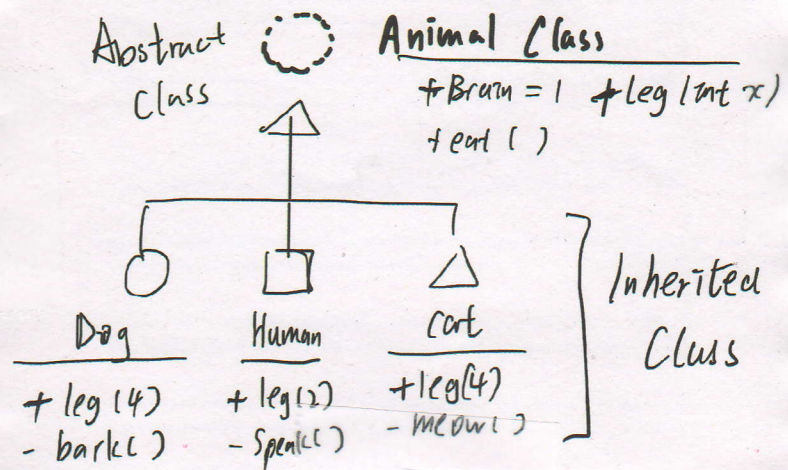 Abstract Class
Animal Class
+Brain = 1 +leg(int x)
+eat()
Dog
+ leg(4)
- bark()
Human
+ leg(2)
- Speak()
Cat
+leg(4)
- meow()
Inherited Class